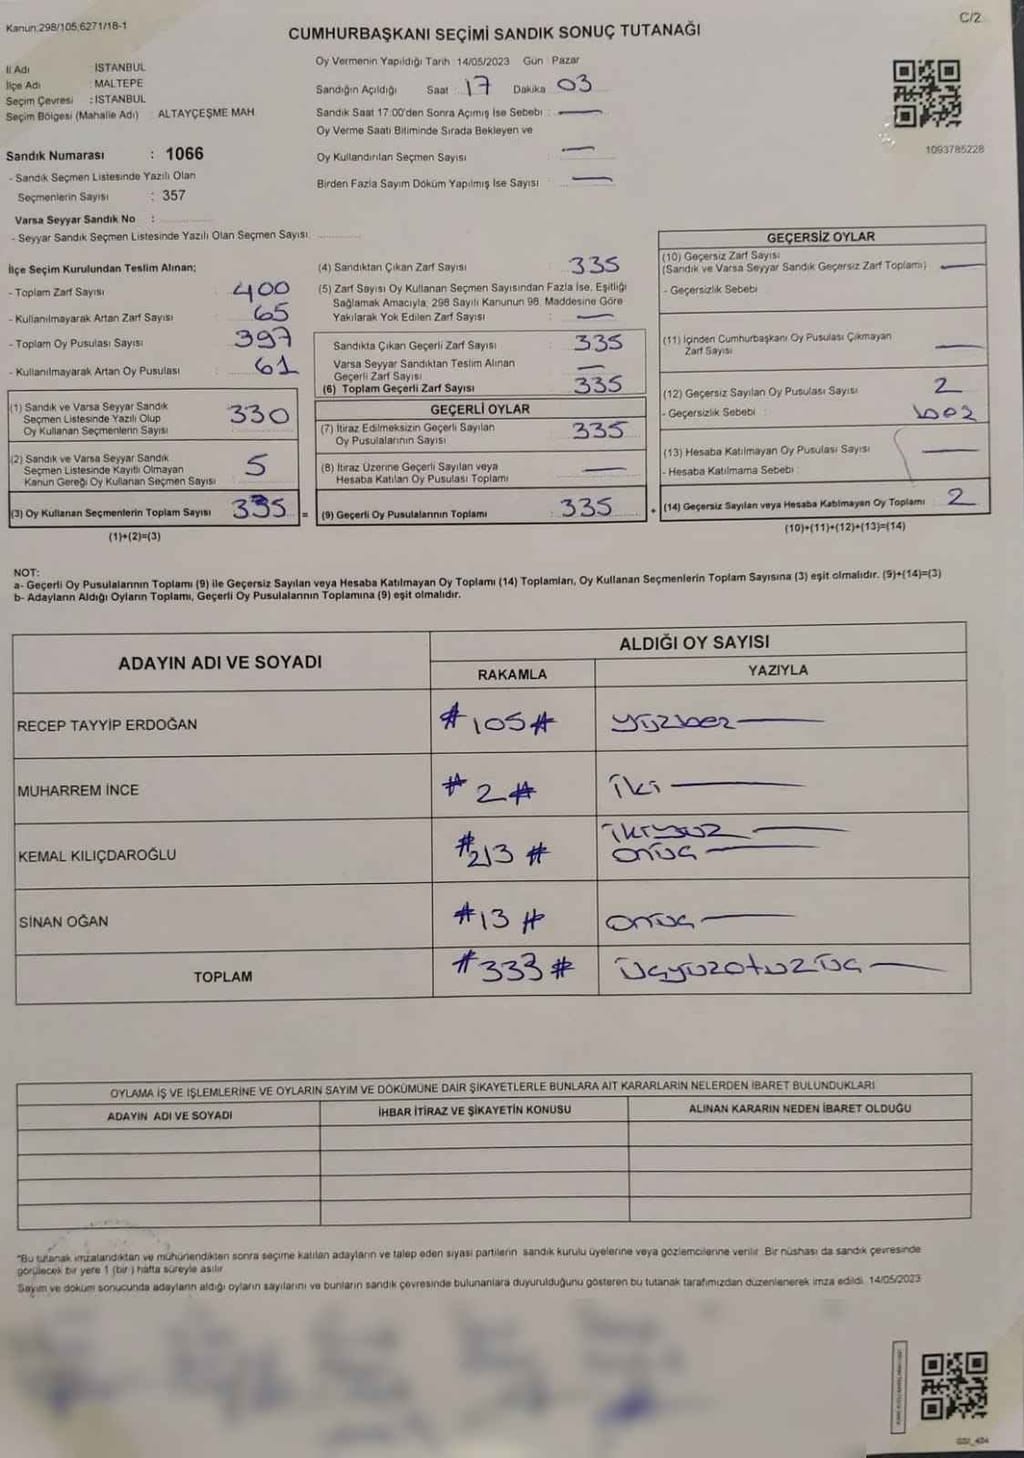 Kanun:298/105,6271/18-1
C/2
CUMHURBAŞKANI SEÇİMİ SANDIK SONUÇ TUTANAĞI
İl Adı : İSTANBUL
İlçe Adı : MALTEPE
Seçim Çevresi : İSTANBUL
Seçim Bölgesi (Mahalle Adı) : ALTAYÇEŞME MAH
Sandık Numarası : 1066
- Sandık Seçmen Listesinde Yazılı Olan
Seçmenlerin Sayısı : 357
Varsa Seyyar Sandık No :
- Seyyar Sandık Seçmen Listesinde Yazılı Olan Seçmen Sayısı
Oy Vermenin Yapıldığı Tarih 14/05/2023 Gün : Pazar
Sandığın Açıldığı Saat : 17 Dakika : 03
Sandık Saat 17:00'den Sonra Açımış İse Sebebi : —
Oy Verme Saati Bitiminde Sırada Bekleyen ve
Oy Kullandırılan Seçmen Sayısı : —
Birden Fazla Sayım Döküm Yapılmış İse Sayısı : —
1093785228
İlçe Seçim Kurulundan Teslim Alınan;
- Toplam Zarf Sayısı : 400
- Kullanılmayarak Artan Zarf Sayısı : 65
- Toplam Oy Pusulası Sayısı : 397
- Kullanılmayarak Artan Oy Pusulası : 61
(1) Sandık ve Varsa Seyyar Sandık
Seçmen Listesinde Yazılı Olup
Oy Kullanan Seçmenlerin Sayısı 330
(2) Sandık ve Varsa Seyyar Sandık
Seçmen Listesinde Kayıtlı Olmayan
Kanun Gereği Oy Kullanan Seçmen Sayısı 5
(3) Oy Kullanan Seçmenlerin Toplam Sayısı 335 =
(1)+(2)=(3)
(4) Sandıktan Çıkan Zarf Sayısı : 335
(5) Zarf Sayısı Oy Kullanan Seçmen Sayısından Fazla İse, Eşitliği
Sağlamak Amacıyla; 298 Sayılı Kanunun 98. Maddesine Göre
Yakılarak Yok Edilen Zarf Sayısı : —
Sandıkta Çıkan Geçerli Zarf Sayısı : 335
Varsa Seyyar Sandıktan Teslim Alınan
Geçerli Zarf Sayısı : —
(6) Toplam Geçerli Zarf Sayısı : 335
GEÇERLİ OYLAR
(7) İtiraz Edilmeksizin Geçerli Sayılan
Oy Pusulalarının Sayısı : 335
(8) İtiraz Üzerine Geçerli Sayılan veya
Hesaba Katılan Oy Pusulası Toplamı : —
(9) Geçerli Oy Pusulalarının Toplamı : 335 +
GEÇERSİZ OYLAR
(10) Geçersiz Zarf Sayısı
(Sandık ve Varsa Seyyar Sandık Geçersiz Zarf Toplamı) —
- Geçersizlik Sebebi
(11) İçinden Cumhurbaşkanı Oy Pusulası Çıkmayan
Zarf Sayısı —
(12) Geçersiz Sayılan Oy Pusulası Sayısı : 2
- Geçersizlik Sebebi :
(13) Hesaba Katılmayan Oy Pusulası Sayısı —
- Hesaba Katılmama Sebebi :
(14) Geçersiz Sayılan veya Hesaba Katılmayan Oy Toplamı 2
(10)+(11)+(12)+(13)=(14)
NOT:
a- Geçerli Oy Pusulalarının Toplamı (9) ile Geçersiz Sayılan veya Hesaba Katılmayan Oy Toplamı (14) Toplamları, Oy Kullanan Seçmenlerin Toplam Sayısına (3) eşit olmalıdır. (9)+(14)=(3)
b- Adayların Aldığı Oyların Toplamı, Geçerli Oy Pusulalarının Toplamına (9) eşit olmalıdır.
ADAYIN ADI VE SOYADI
ALDIĞI OY SAYISI
RAKAMLA YAZIYLA
RECEP TAYYİP ERDOĞAN #105# yüzbeş —
MUHARREM İNCE #2# iki —
KEMAL KILIÇDAROĞLU #213# ikiyüz —
onüç —
SİNAN OĞAN #13# onüç —
TOPLAM #333# üçyüzotuzüç —
OYLAMA İŞ VE İŞLEMLERİNE VE OYLARIN SAYIM VE DÖKÜMÜNE DAİR ŞİKAYETLERLE BUNLARA AİT KARARLARIN NELERDEN İBARET BULUNDUKLARI
ADAYIN ADI VE SOYADI İHBAR İTİRAZ VE ŞİKAYETİN KONUSU ALINAN KARARIN NEDEN İBARET OLDUĞU
"Bu tutanak imzalandıktan ve mühürlendikten sonra seçime katılan adayların ve talep eden siyasi partilerin sandık kurulu üyelerine veya gözlemcilerine verilir. Bir nüshası da sandık çevresinde
görülecek bir yere 1 (bir) hafta süreyle asılır
Sayım ve döküm sonucunda adayların aldığı oyların sayılarını ve bunların sandık çevresinde bulunanlara duyurulduğunu gösteren bu tutanak tarafımızdan düzenlenerek imza edildi. 14/05/2023